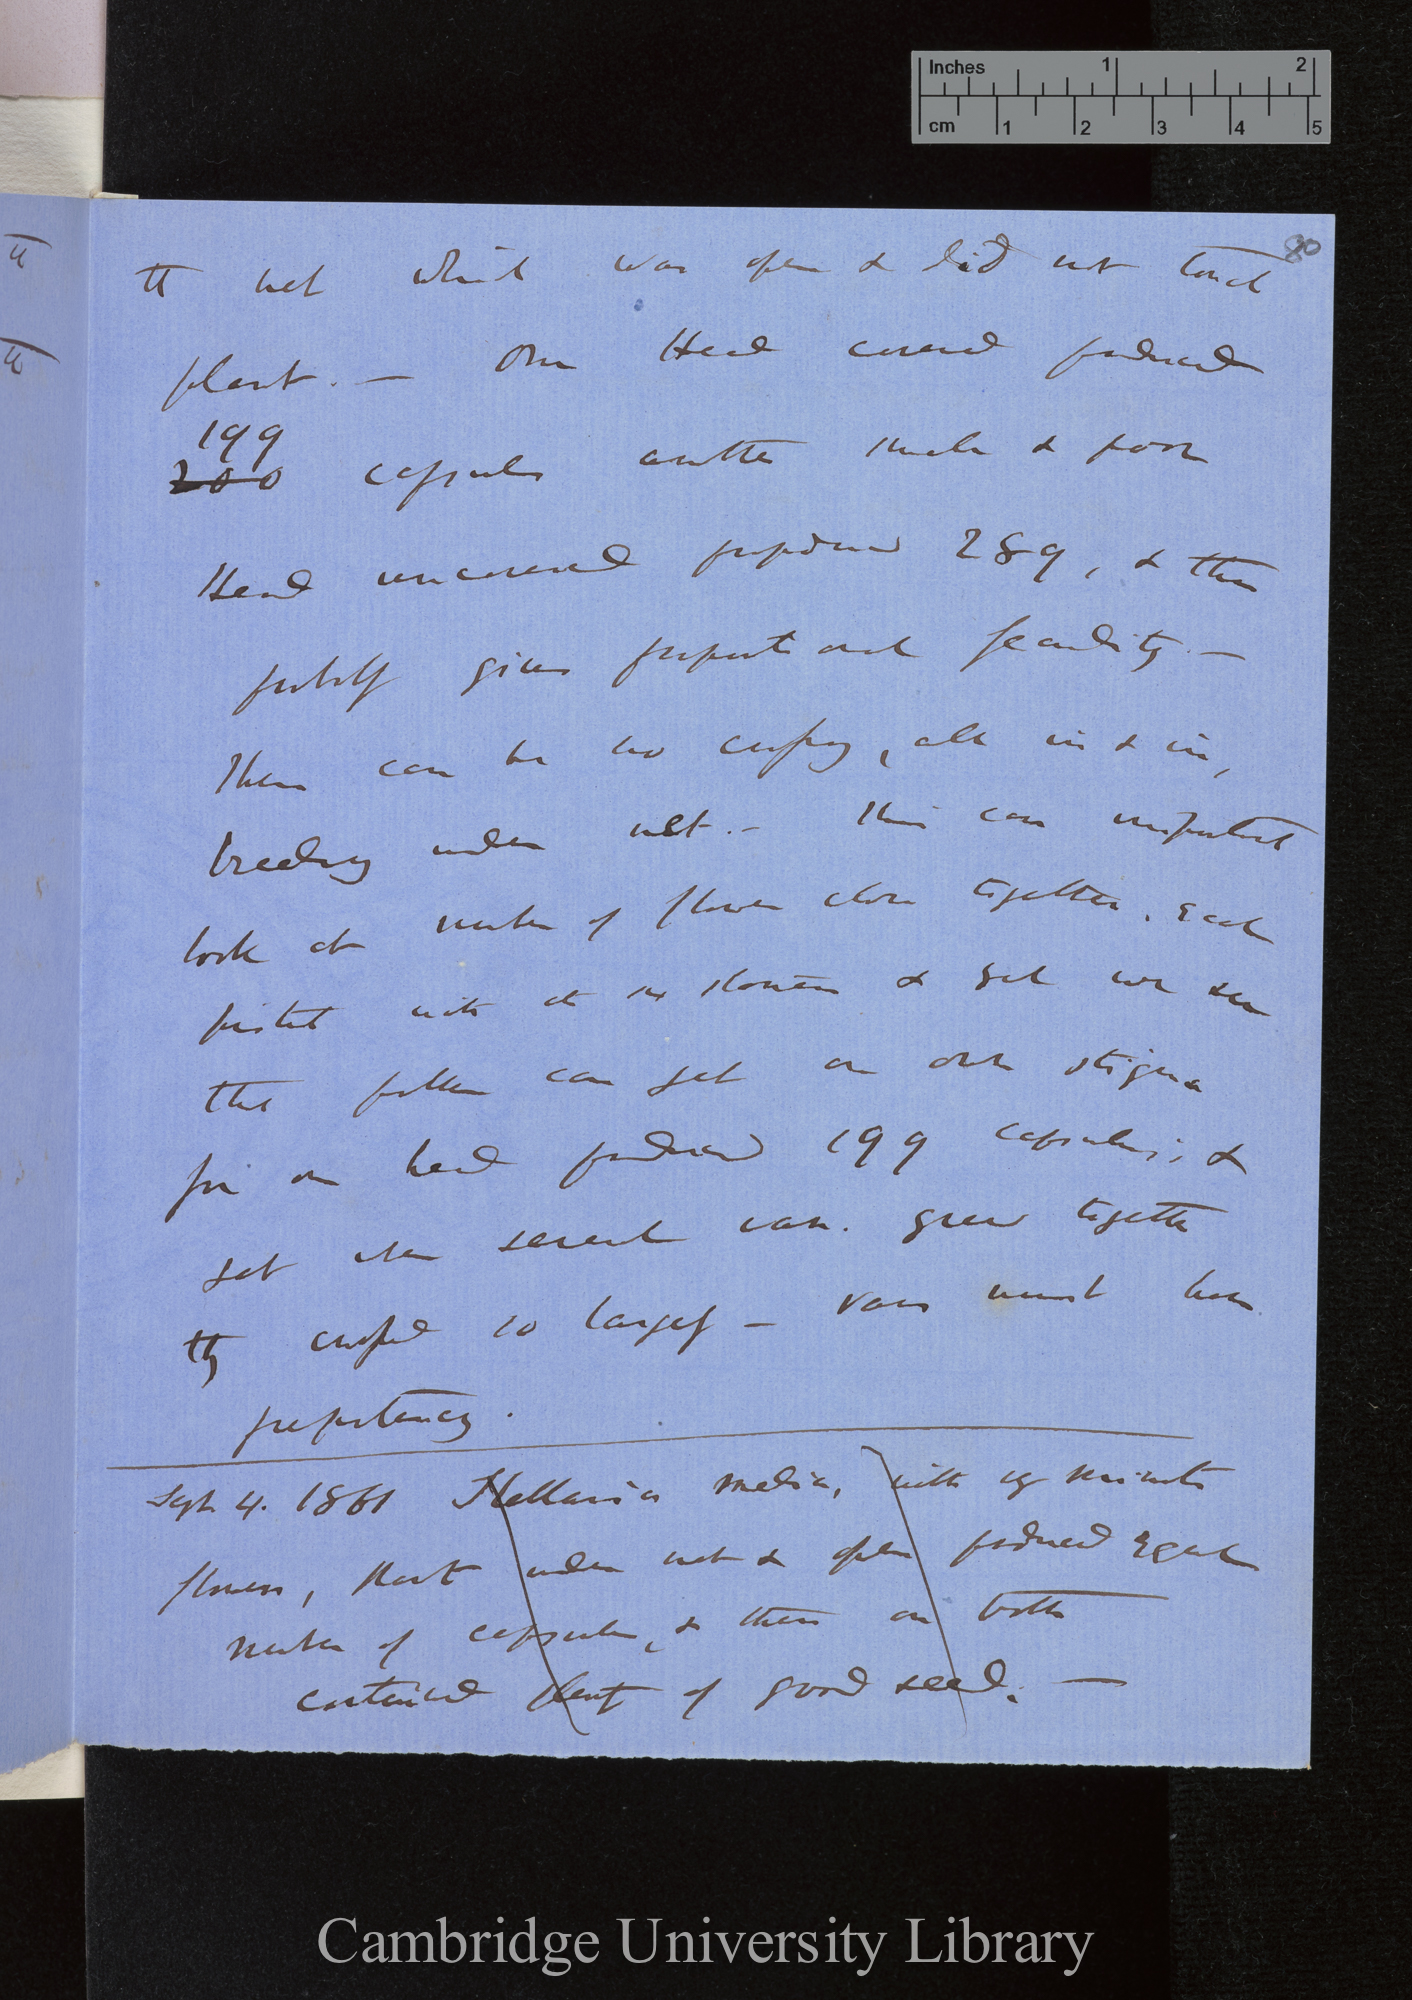 Inches 1 2
cm 1 2 3 4 5
80
the net which was open & did not touch
plant. — One Head covered produced
199
200 capsules another smaller & poor
Head uncovered produced 289, & this
probably gives proportional fecundity. —
There can be no crossing, all in & in,
breeding under net. — This case important
look at number of flowers close together, each
pistil with its six stamens & yet we see
that pollen can get on own stigma
for one head produced 199 capsules; & 
yet when several vars. grew together
they crossed so largely — Vars must have
prepotency.
Sept 4. 1861 Stellaria media, with v minute
flowers, plant under net & open produced equal
number of capsules, & these on both
contained plenty of good seed. —
Cambridge University Library